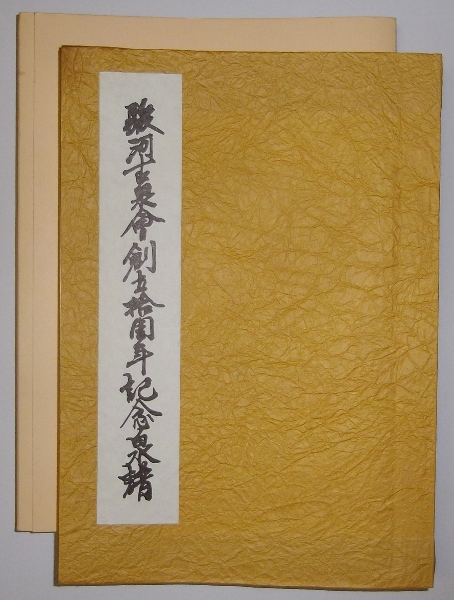 駿河古泉會創立五拾周年記念泉譜